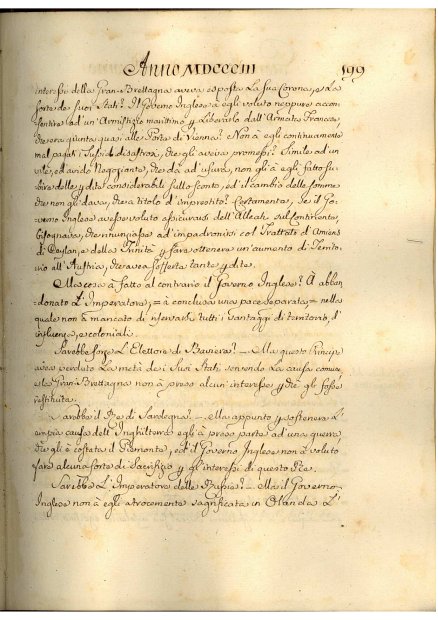 Anno MDCCCIII 199
interessi della Gran-Brettagna aveva esposta La sua Corona, e La
sorte de' suoi Stati? Il Governo Inglese à egli voluto neppure accon
sentire ad un' Armistizio marittimo p Liberarlo dall' Armata Francese,
che era giunta quasi alle Porte di Vienna? Non à egli continuamente
mal pagati i sussidj disastrosi, che gli aveva promessi? Simile ad un
vile, ed avido Negoziante, che dà ad usura, non gli à egli fatto su-
bire delle pdite considerabili sullo sconto, ed il cambio delle somme
che non gli dava, che a titolo d' imprestito? Certamente, se il Go-
verno Inglese avesse voluto assicurarsi dell' Alleati sul Continente,
bisognava, che rinunziasse ad impadronirsi col Trattato d' Amiens
di Ceylan, e della Trinità p fare ottenere un' aumento di Territo-
rio all' Austria, che aveva sofferte tante pdite.
Ma cosa à fatto al contrario il Governo Inglese? À abban
donato L' Imperatore, = à conclusa una pace separata, = nella
quale non à mancato di riservarsi tutti i vantaggi di territorio, d'
influenza, e coloniali.
Sarebbe forse L' Elettore di Baviera? - Ma questo Principe
avea perduto La metà dei suoi Stati servendo La causa comune,
e la Gran-Brettagna non à preso alcun' interesse p che gli fosse
restituita.
Sarebbe il Re di Sardegna? - Ma appunto p sostenere L'
empia causa dell' Inghilterra egli à preso parte ad una guerra,
che gli è costata il Piemonte, ed il Governo Inglese non à voluto
fare alcuna sorte di Sacrifizio p gl' interessi di questo Re.
Sarebbe L' Imperatore delle Russie? - Ma il Governo
Inglese non à egli atrocemente sagrificata in Olanda L'